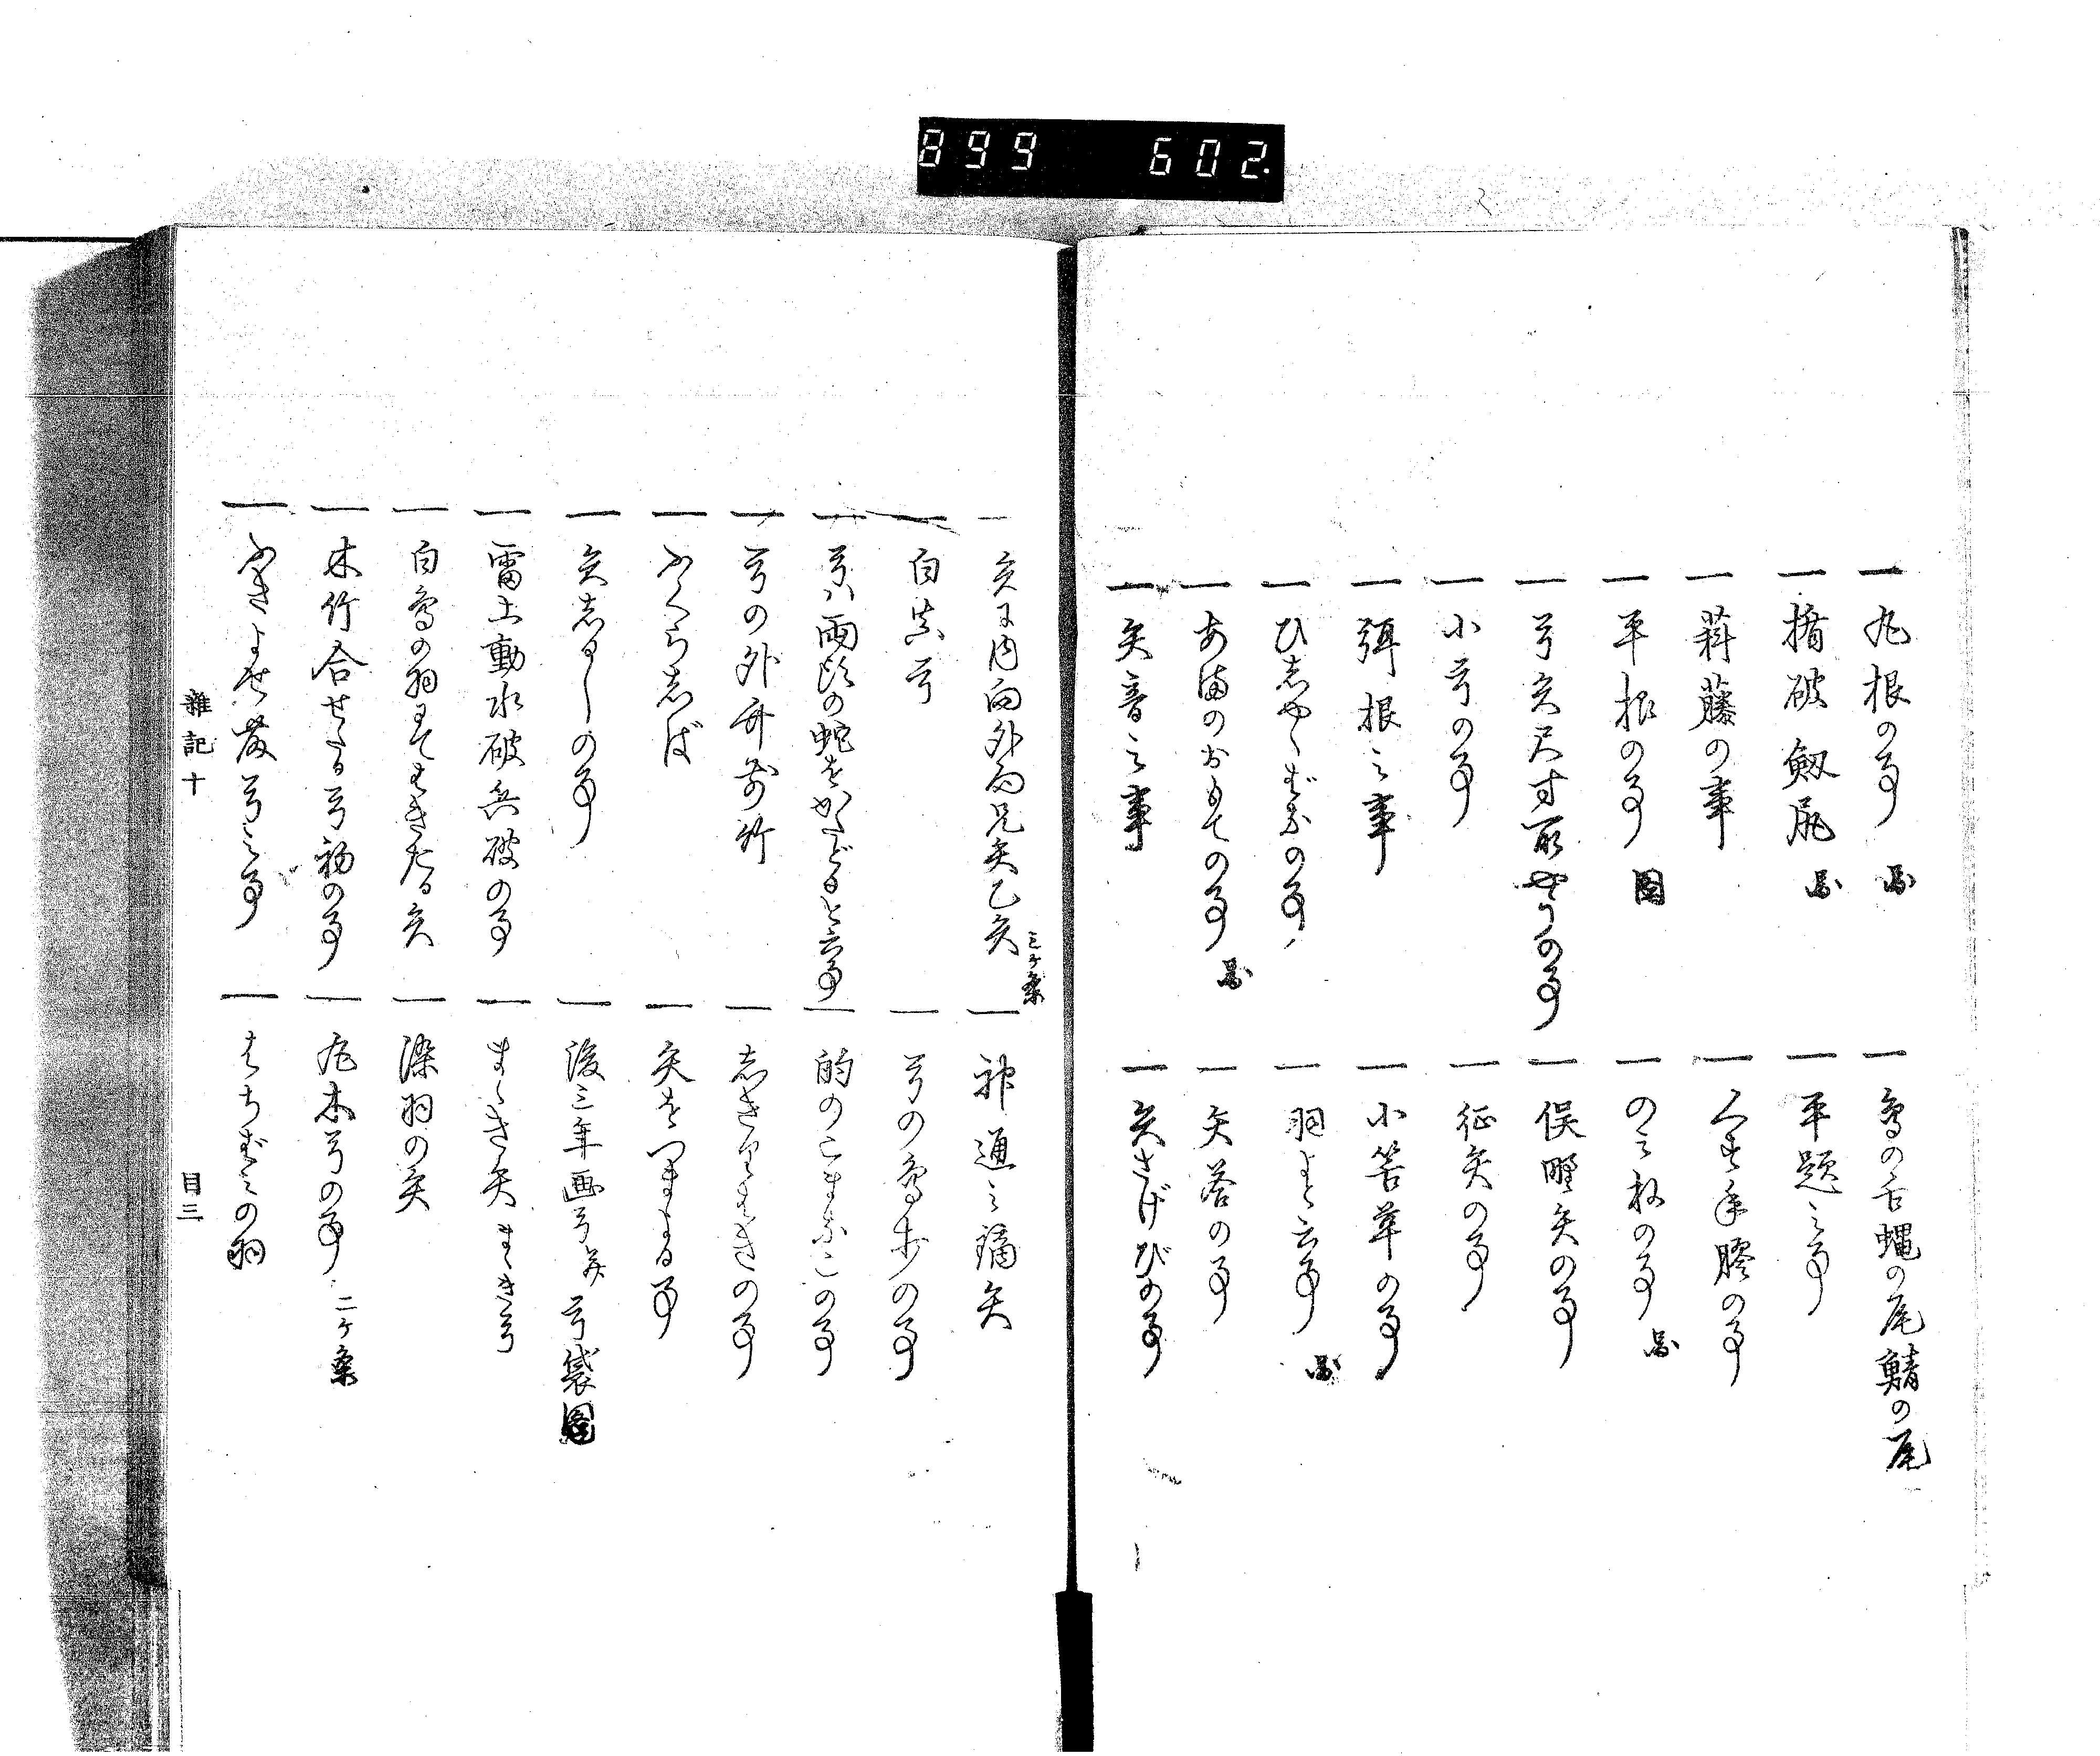 899 602.
一 丸根の事 図
一 鳥の舌蝿の尾鯖の尾
一 楯破 剱尻 図
一 平題之事
一 蒋藤の事
一 くすね膠の事
一 平根の事 図
一 のミ根の事 図
一 弓矢尺寸取やうの事
一 俣野矢の事
一 小弓の事
一 征矢の事
一 弭根之事
一 小笠革の事
一 ひしやくがらの事
一 羽よと云事 図
一 あまのおもての事 図
一 矢答の事
一 矢音之事
一 矢さけびの事
一 矢に内向外向兄矢乙矢 三ヶ条
一 神通之鏑矢
一 白真弓
一 弓の鳥打の事
一 弓ハ両頭の蛇をかたどると云事
一 的のこまなこの事
一 弓の外竹前竹
一 ふくらしば
一 矢をつまよる事
一 矢しるしの事
一 後三年画弓矢 弓袋図
一 雷上動水破兵破の事
一 まゝき矢まゝき弓
一 白鳥の羽にてはきたる矢
一 染羽の矢
一 木竹合せたる弓初の事
一 丸木弓の事 二ヶ条
一 ふきよせ藤弓之事
一 はちずミの羽
雑記十 目三